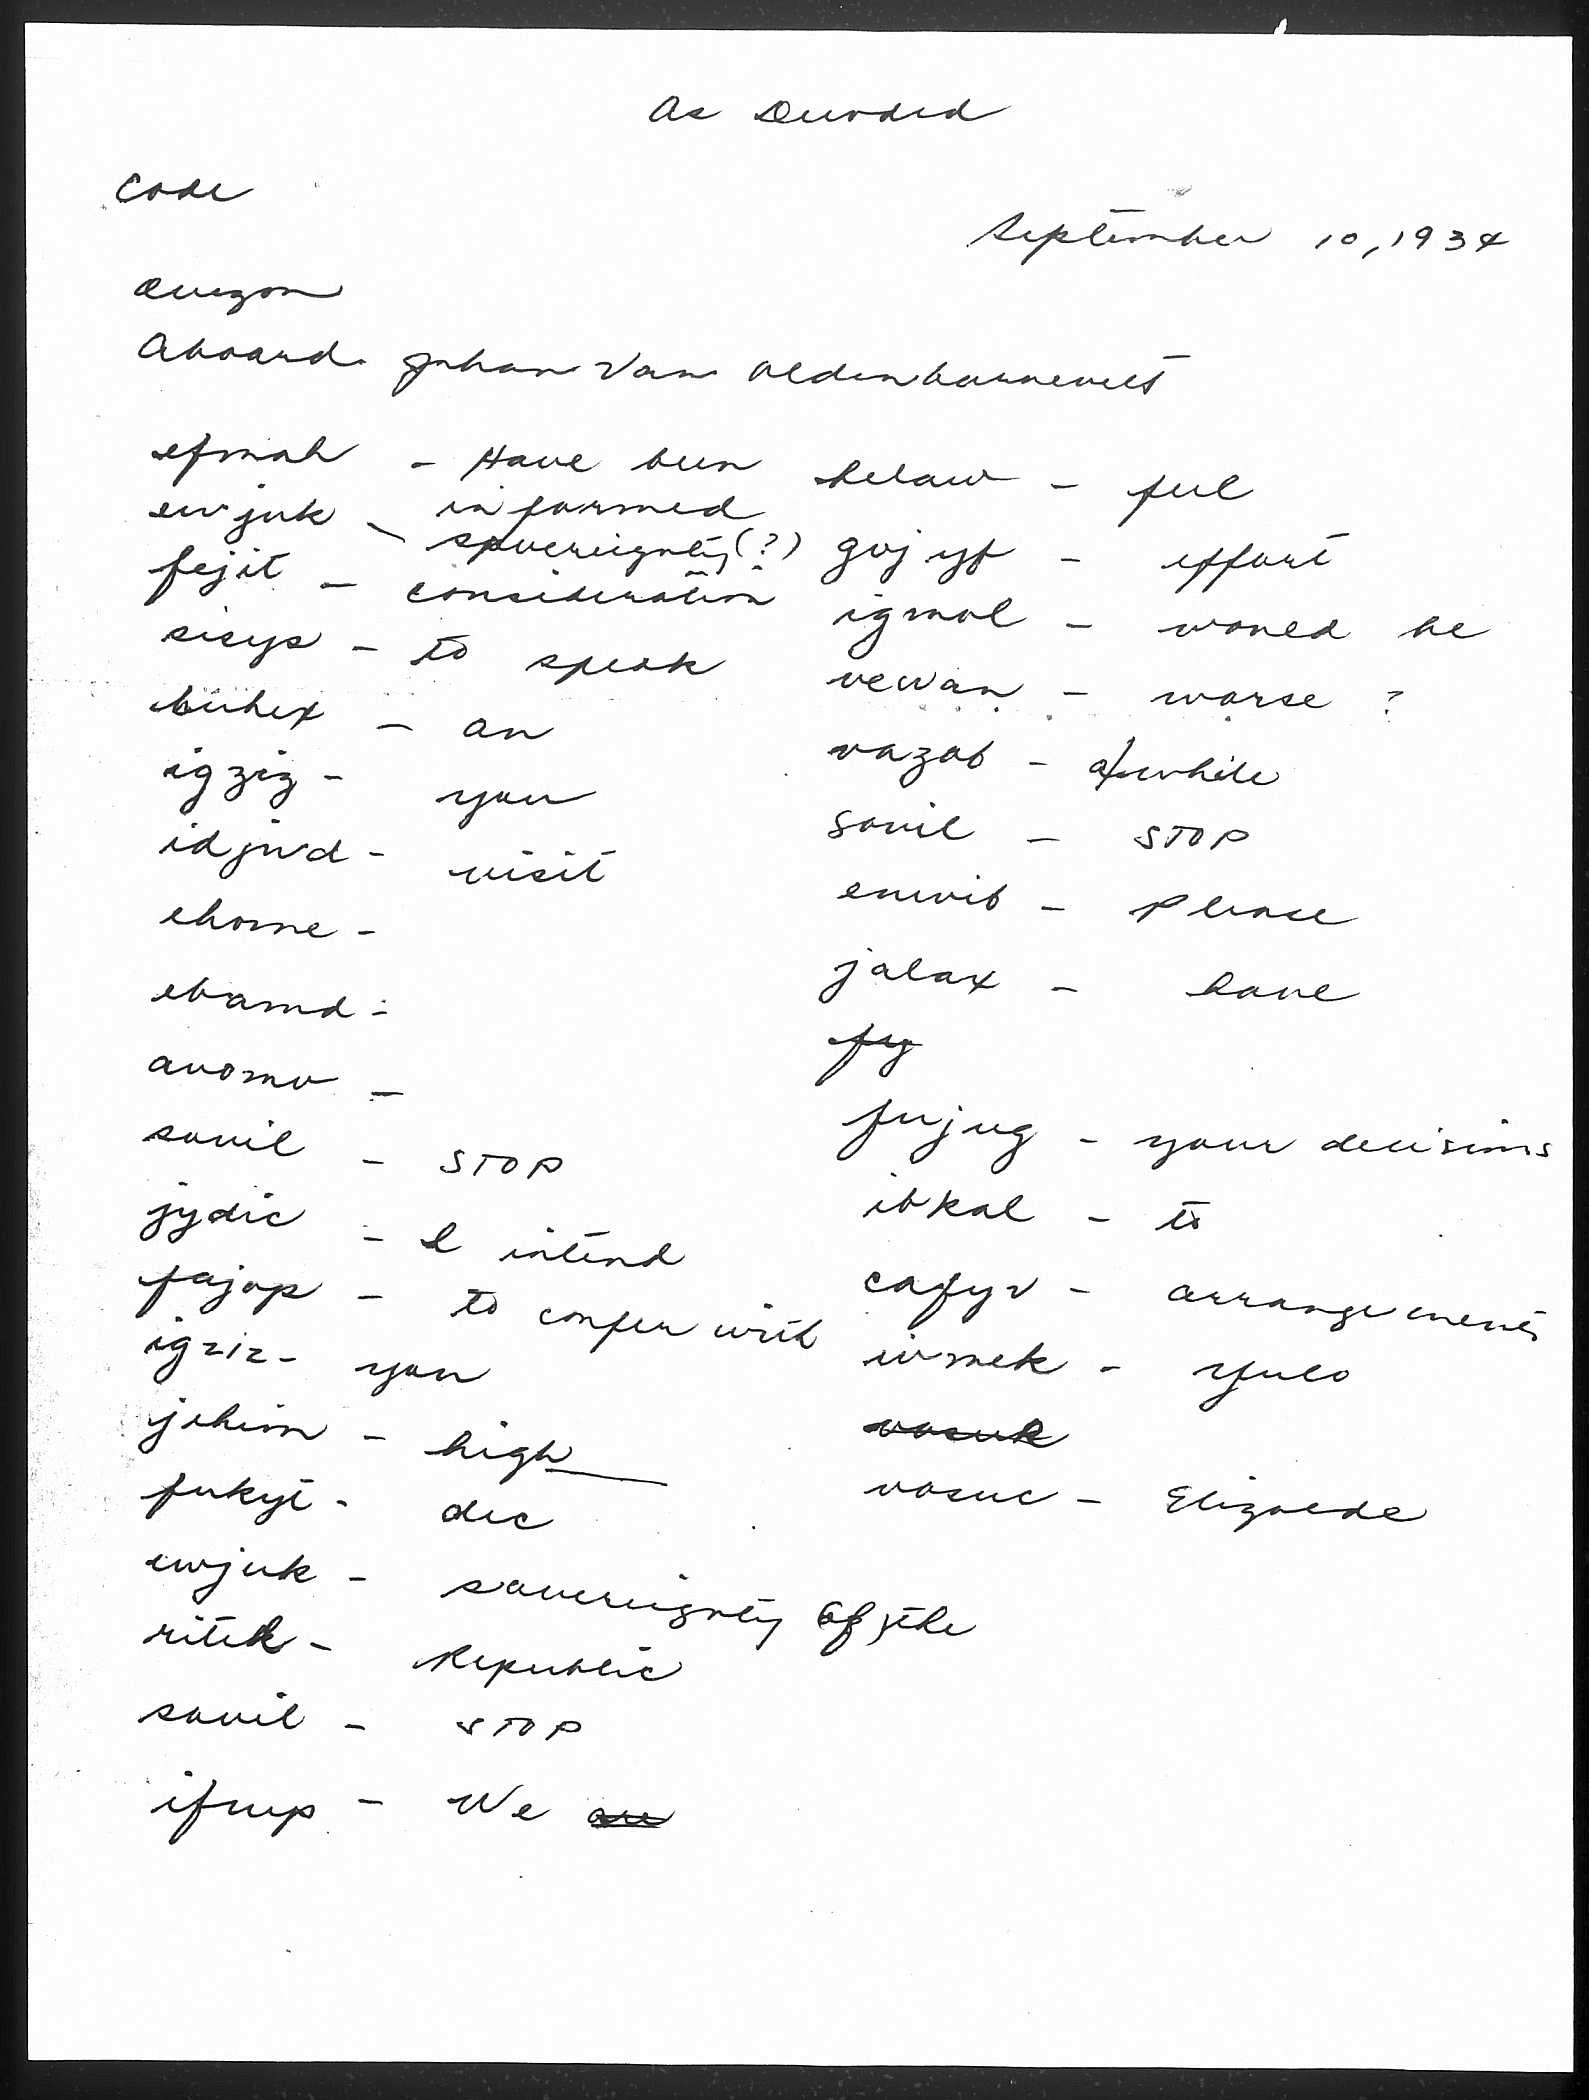 As Decoded
Code
September 10, 1934
Quezon
Aboard Johan Van Oldenbarnevelt
efmah - Have been informed
ewjuk - sovereignty (?)
fejit - consideration
sisys - to speak
buhex - an
igziz - you
idjwd - visit
ehome -
ebamd -
avomv -
sovil - STOP
jydic - I intend
fajop - to confer with
igziz - you
jehim - high
fukyt - dec
ewjuk - sovereignty of the
ritek - Republic
sovil - STOP
ifnup - We are
helaw - feel
gojyf - effort
igmol - would be
vewan - worse ?
vazob - awhile
sovil - STOP
enwib - Please
jalax - have
fuy
fujug - your decisions
ibkal - to
cafyv - arrangements
ivmek - Yulo
vosuk
vosuc - Elizalde